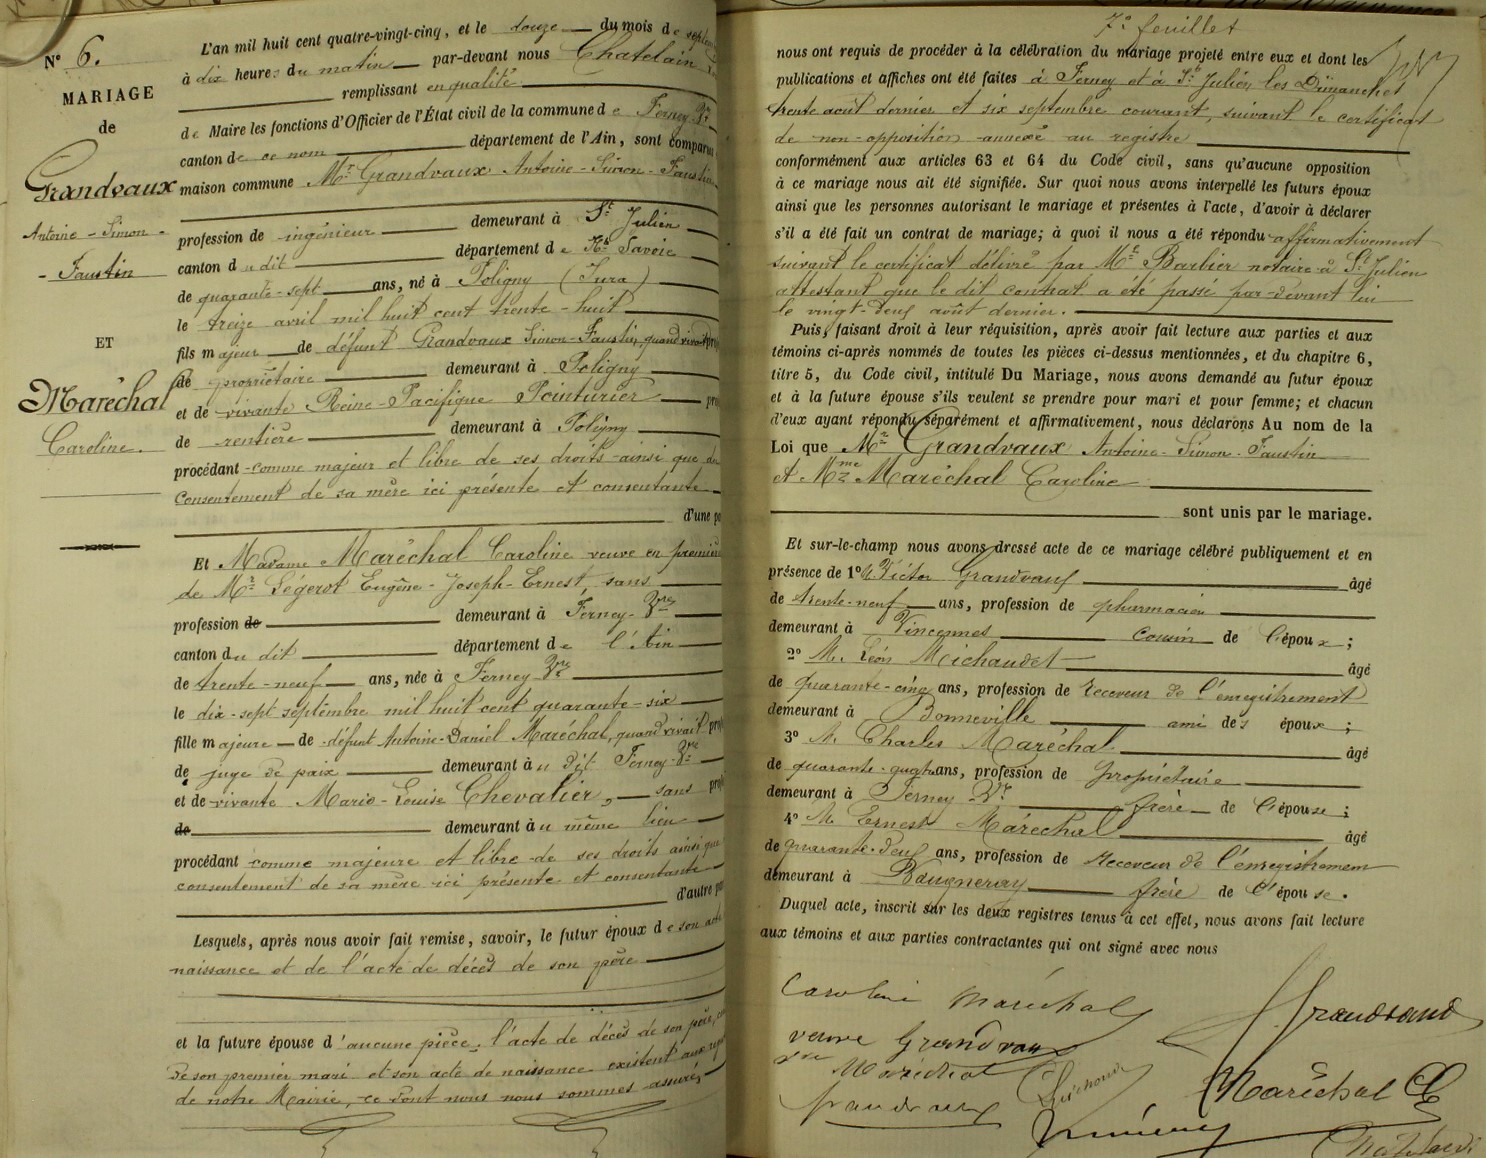 N° 6.
MARIAGE
de
Grandvaux
Antoine - Simon -
- Faustin
ET
Maréchal
Caroline.
L'an mil huit cent quatre-vingt-cinq, et le douze du mois de
à dix heures du matin par-devant nous Chatelain
remplissant en qualité
de Maire les fonctions d'Officier de l'État civil de la commune de Ferney-Vre
canton de ce nom département de l'Ain, sont
maison commune Mr Grandvaux Antoine - Simon - Faustin
profession de ingénieur demeurant à St Julien
canton du dit département de Hte Savoie
de quarante-sept ans, né à Poligny (Jura)
le treize avril mil huit cent trente-huit
fils majeur de défunt Grandvaux Simon-Faustin, quand vivait
de propriétaire demeurant à Poligny
et de vivante Reine-Pacifique Pointurier
de rentière demeurant à Poligny
procédant comme majeur et libre de ses droits ainsi que du
consentement de sa mère ici présente et consentante
d'une
Et Madame Maréchal Caroline veuve en
de Mr Légerot Eugène-Joseph-Ernest, sans
profession de demeurant à Ferney-Vre
canton du dit département de l'Ain
de trente-neuf ans, née à Ferney Vre
le dix-sept septembre mil huit cent quarante-six
fille majeure de défunt Antoine-Daniel Maréchal, quand vivait
de juge de paix demeurant au dit Ferney-Vre
et de vivante Marie-Louise Chevalier, sans
de demeurant au même lieu
procédant comme majeure et libre de ses droits ainsi que
consentement de sa mère ici présente et consentante
d'autre
Lesquels, après nous avoir fait remise, savoir, le futur époux de son acte
naissance et de l'acte de décès de son père
et la future épouse d'aucune pièce, l'acte de décès de son père,
de son premier mari et son acte de naissance existent aux
de notre Mairie, ce dont nous nous sommes assuré,
7e feuillet
nous ont requis de procéder à la célébration du mariage projeté entre eux et dont les
publications et affiches ont été faites à Ferney et à St Julien les Dimanches
trente août dernier et six septembre courant, suivant le certificat
de non-opposition annexé au registre
conformément aux articles 63 et 64 du Code civil, sans qu'aucune opposition
à ce mariage nous ait été signifiée. Sur quoi nous avons interpellé les futurs époux
ainsi que les personnes autorisant le mariage et présentes à l'acte, d'avoir à déclarer
s'il a été fait un contrat de mariage; à quoi il nous a été répondu affirmativement
suivant le certificat délivré par Me Barbier notaire à St Julien
attestant que le dit contrat a été passé par-devant lui
le vingt-deux août dernier.
Puis, faisant droit à leur réquisition, après avoir fait lecture aux parties et aux
témoins ci-après nommés de toutes les pièces ci-dessus mentionnées, et du chapitre 6,
titre 5, du Code civil, intitulé Du Mariage, nous avons demandé au futur époux
et à la future épouse s'ils veulent se prendre pour mari et pour femme; et chacun
d'eux ayant répondu séparément et affirmativement, nous déclarons Au nom de la
Loi que Mr Grandvaux Antoine-Simon-Faustin
et Mme Maréchal Caroline
sont unis par le mariage.
Et sur-le-champ nous avons dressé acte de ce mariage célébré publiquement et en
présence de 1° M. Victor Grandvaux âgé
de trente-neuf ans, profession de pharmacien
demeurant à Vincennes cousin de l'époux;
2° M. Léon Michaudet âgé
de quarante-cinq ans, profession de receveur de l'enregistrement
demeurant à Bonneville ami des époux;
3° M. Charles Maréchal âgé
de quarante-quatre ans, profession de propriétaire
demeurant à Ferney-Vre frère de l'épouse;
4° M. Ernest Maréchal âgé
de quarante-deux ans, profession de receveur de l'enregistrement
demeurant à frère de l'épouse.
Duquel acte, inscrit sur les deux registres tenus à cet effet, nous avons fait lecture
aux témoins et aux parties contractantes qui ont signé avec nous
Caroline Maréchal
Grandvaux
veuve Grandvaux
vve Maréchal
Maréchal
Grandvaux